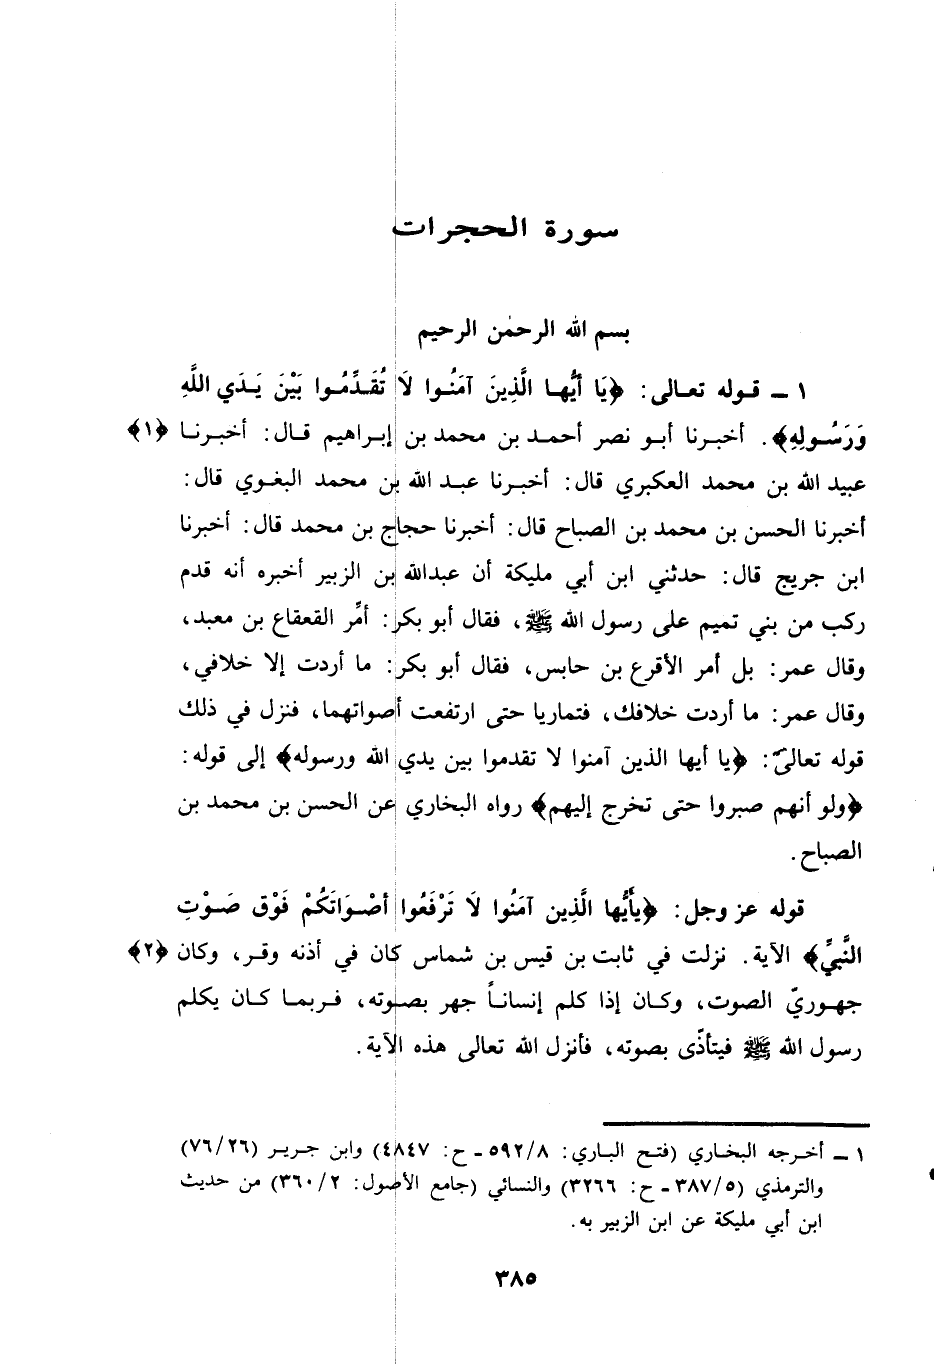 سورة الحجرات
بسم الله الرحمٰن الرحيم
١ ــ قـوله تعـالى: ﴿يَا أَيُّهـا الَّذِينَ آمَنُـوا لَا تُقَـدِّمُـوا بَيْنَ يَـدَي اللَّهِ
وَرَسُـولِهِ﴾. أخبـرنا أبـو نصر أحمـد بن محمد بن إبـراهيم قـال: أخبـرنـا ﴿١﴾
عبيد الله بن محمد العكبري قال: أخبـرنا عبـد الله بن محمد البغـوي قال:
أخبرنا الحسن بن محمد بن الصباح قال: أخبرنا حجاج بن محمد قال: أخبرنا
ابن جريج قال: حدثني ابن أبي مليكة أن عبدالله بن الزبير أخبره أنه قدم
ركب من بني تميم على رسول الله ﷺ، فقال أبو بكر: أمِّر القعقاع بن معبد،
وقال عمر: بل أمر الأقرع بن حابس، فقال أبو بكر: ما أردت إلا خلافي،
وقال عمر: ما أردت خلافك، فتماريا حتى ارتفعت أصواتهما، فنزل في ذلك
قوله تعالىّ: ﴿يا أيها الذين آمنوا لا تقدموا بين يدي الله ورسوله﴾ إلى قوله:
﴿ولو أنهم صبروا حتى تخرج إليهم﴾ رواه البخاري عن الحسن بن محمد بن
الصباح.
قوله عز وجل: ﴿يأَيُّها الَّذِين آمَنُوا لَا تَرْفَعُوا أصْـوَاتَكُمْ فَوْق صَـوْتِ
النَّبيِّ﴾ الآية. نزلت في ثابت بن قيس بن شماس كان في أذنه وقـر، وكان ﴿٢﴾
جهـوريّ الصوت، وكـان إذا كلم إنسانـاً جهر بصـوته، فـربمـا كـان يكلم
رسول الله ﷺ فيتأذّى بصوته، فأنزل الله تعالى هذه الآية.
١ ــ أخـرجه البخـاري (فتـح البـاري: ٥٩٢/٨ ـ ح: ٤٨٤٧) وابن جـريـر (٧٦/٢٦)
والترمذي (٣٨٧/٥ ـ ح: ٣٢٦٦) والنسائي (جامع الأصول: ٣٦٠/٢) من حديث
ابن أبي مليكة عن ابن الزبير به.
٣٨٥